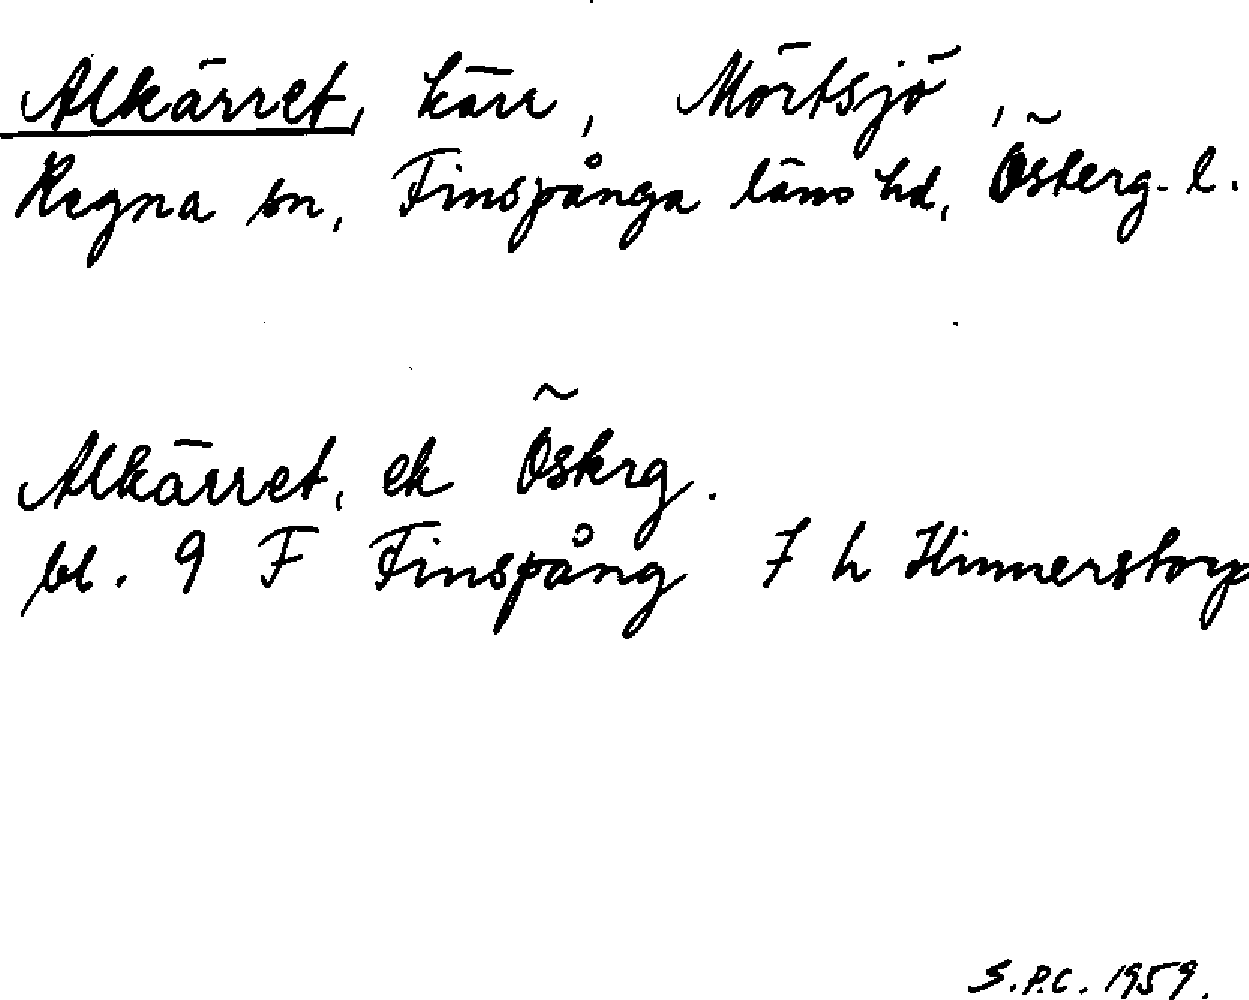 Alkärret, kärr, Mörtsjö,
Regna sn, Finspånga läns hd, Österg. l.
Alkärret, ek Österg.
bl. 9 F Finspång 7 h Himmerstorp
S.P.C. 1959.